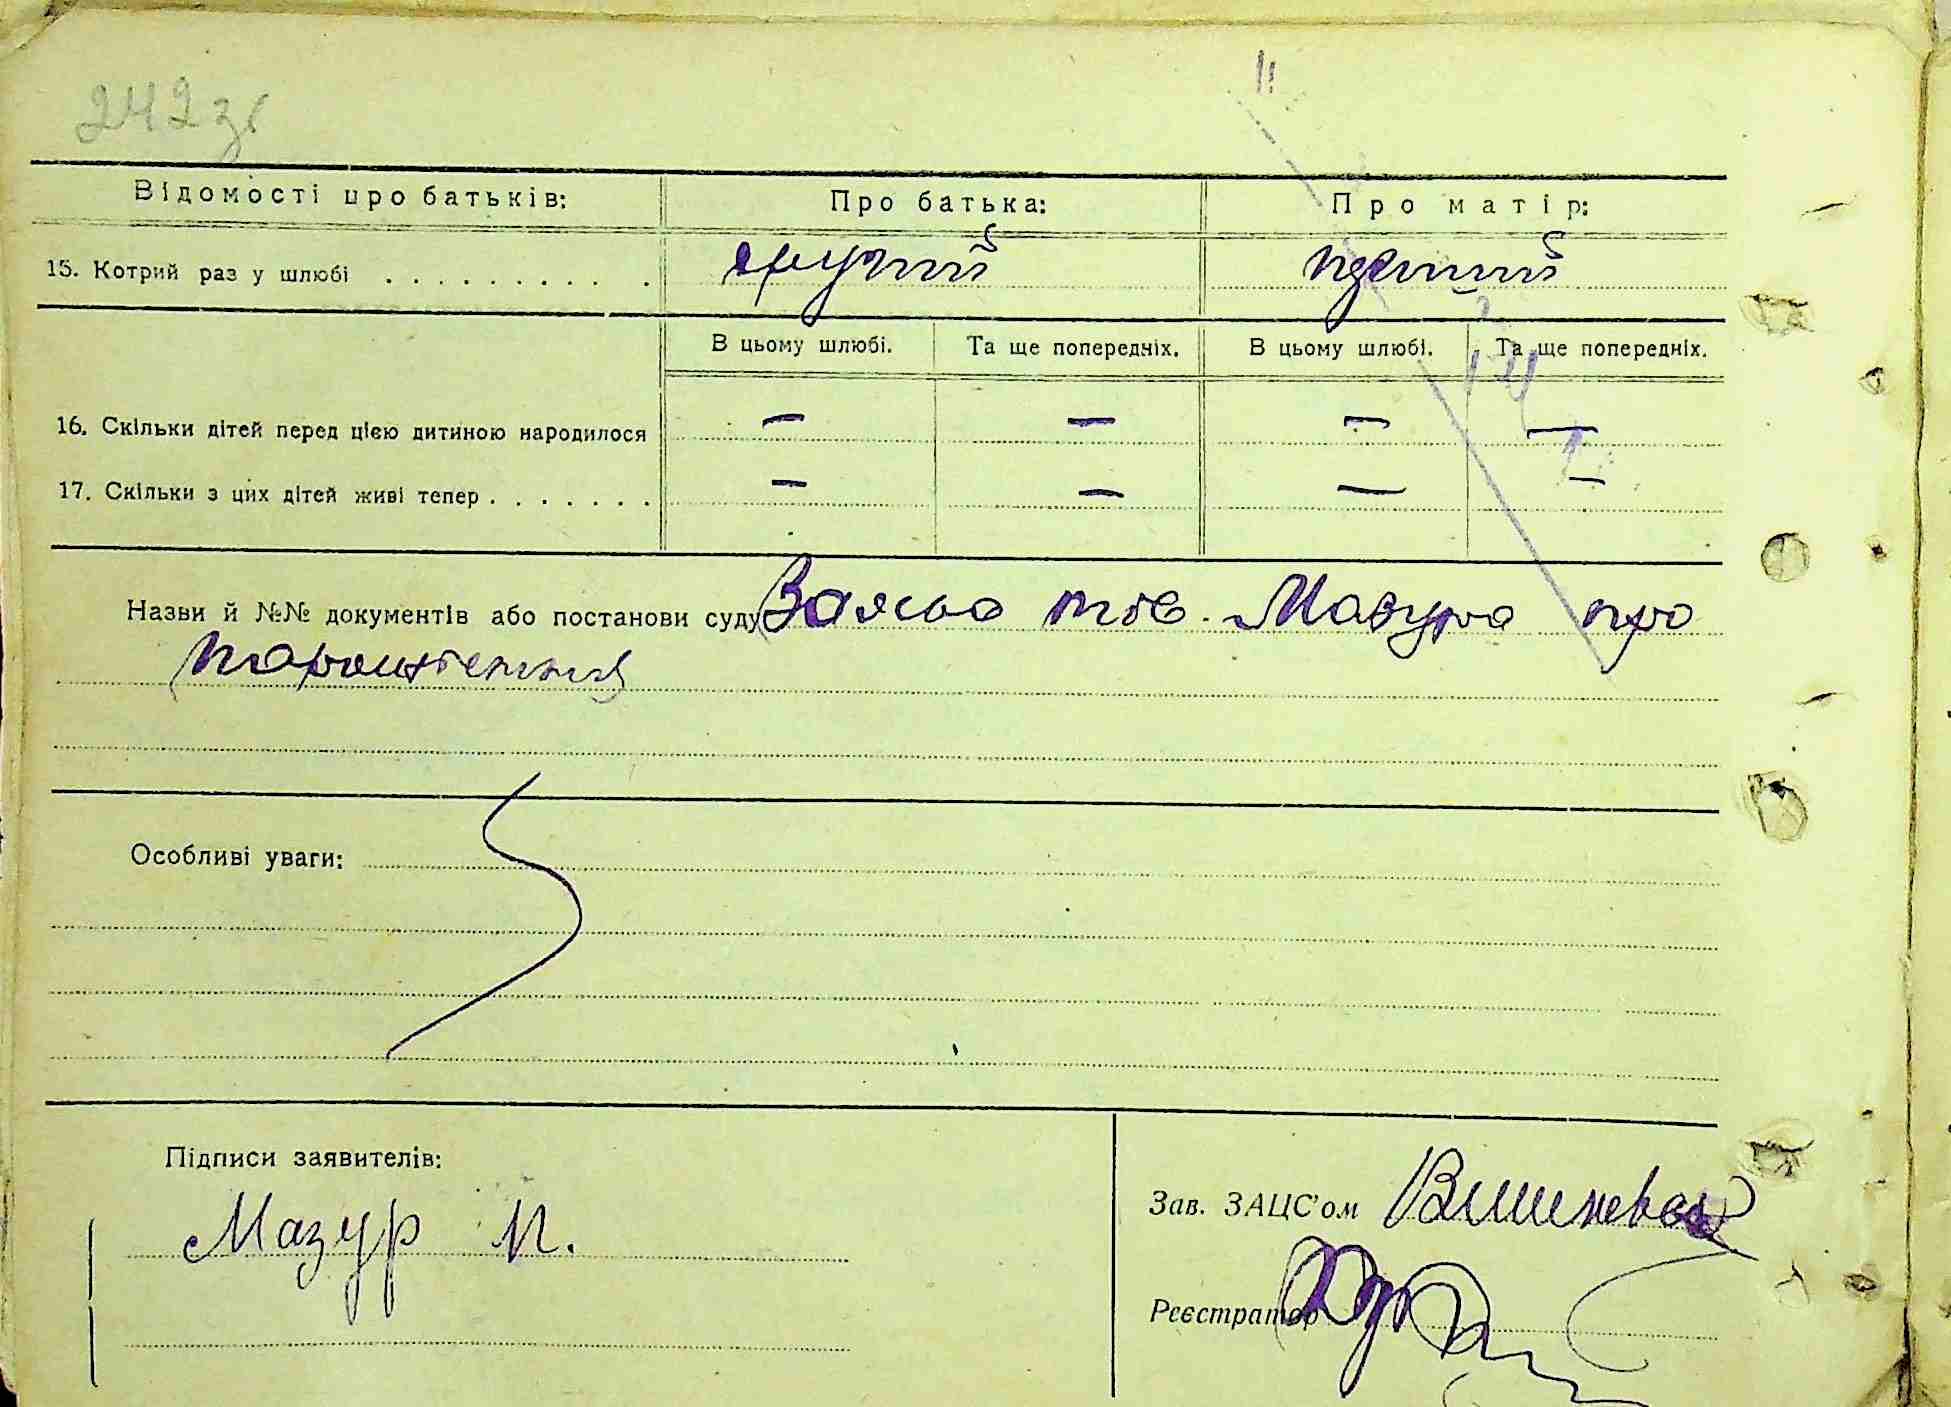 242 зв
Відомості про батьків: Про батька: Про матір:
15. Котрий раз у шлюбі . . . . . . . . . . другий перший
В цьому шлюбі. Та ще попередніх. В цьому шлюбі. Та ще попередніх.
16. Скільки дітей перед цією дитиною народилося — — — —
17. Скільки з цих дітей живі тепер . . . . . . . — — — —
Назви й №№ документів або постанови суду Заява тов. Мазура про
народження
Особливі уваги:
Підписи заявителів:
Мазур П.
Зав. ЗАЦС'ом
Реєстратор